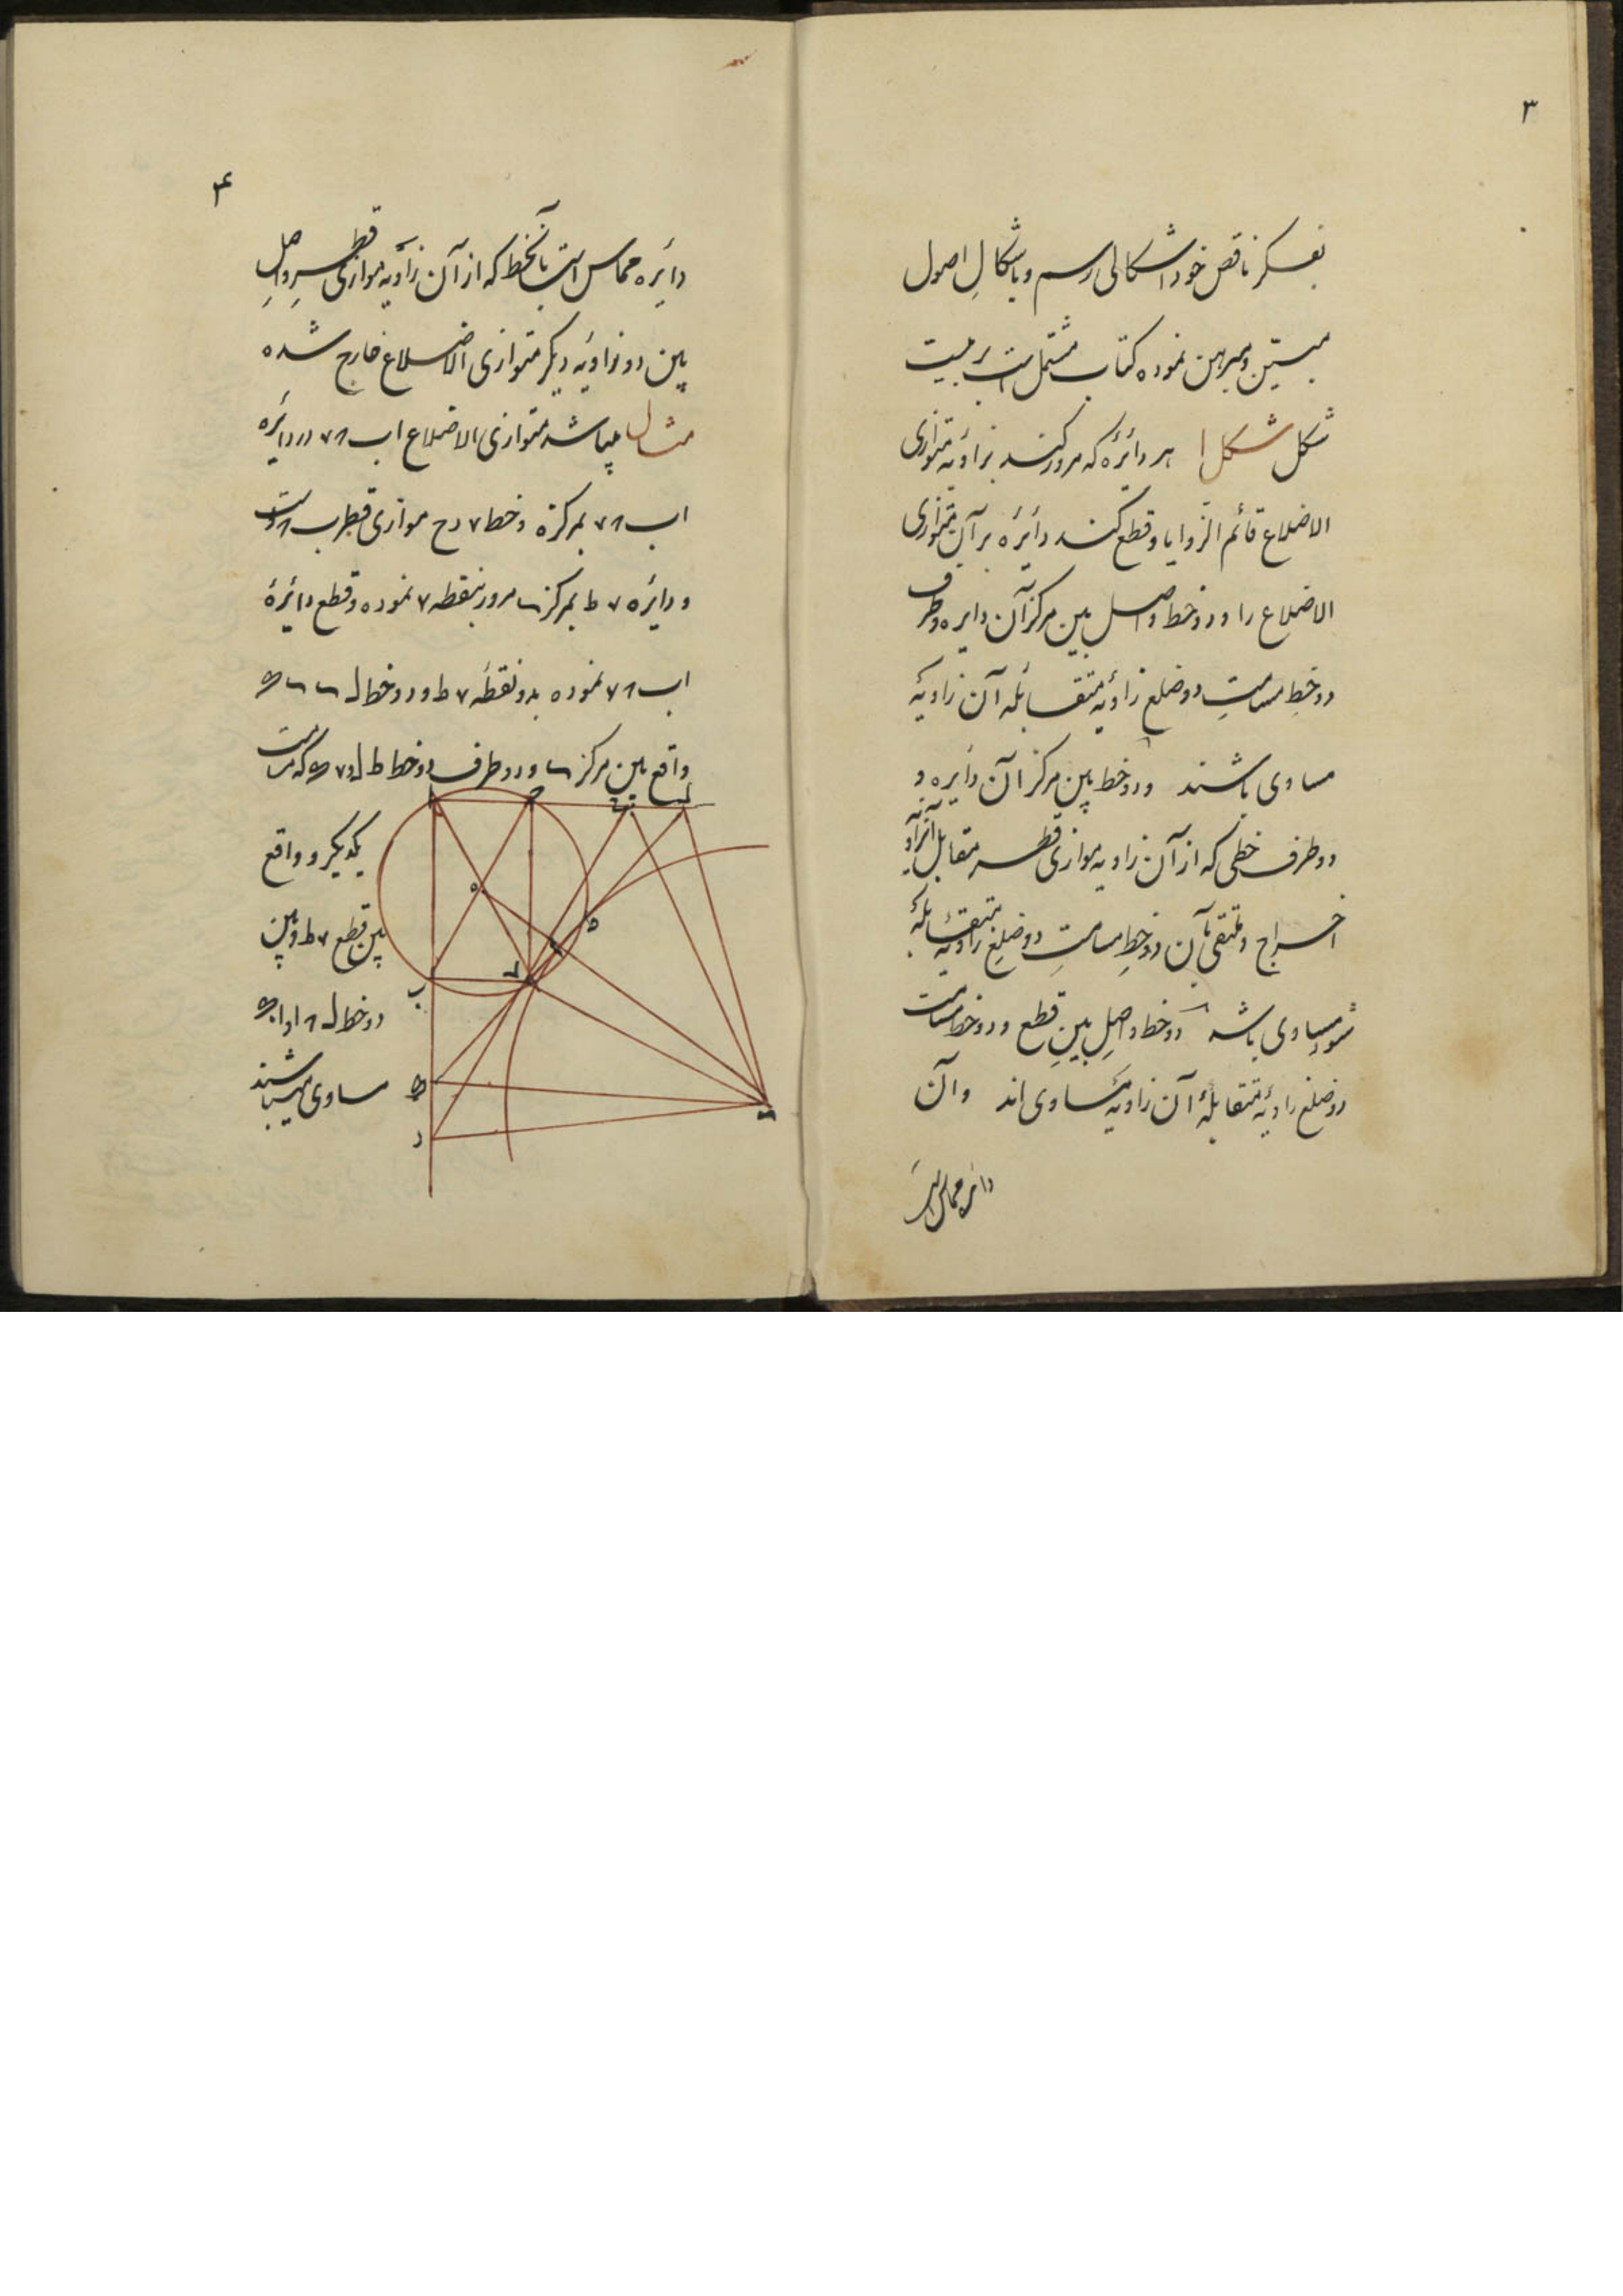 ۳
بفکر ناقص خود اشکالی رسم و باشکال اصول
مبین و مبرهن نموده کتاب مشتمل است بر بیست
شکل شکل ا هر دائرۀ که مرور کند بزاویه متوازی
الاضلاع قائم الزوایا و قطع کند دائره بر آن متوازی
الاضلاع را و دو خط واصل بین مرکز آن دایره و طرف
دو خط مسامت دو ضلع زاویۀ متقابله آن زاویۀ
مساوی باشند و دو خط بین مرکز آن دایره و
دو طرف خطی که از آن زاویه موازی قطر مقابل آنزاویه
اخراج و ملتقی بآن دو خط مسامت دو ضلع زاویه متقابلۀ
شود مساوی باشد دو خط واصل بین قطع و دو خط مسامت
دو ضلع زاویۀ متقابلۀ آن زاویه مساوی اند و آن
دائره مماس است
۴
دائره مماس است بآنخط که از آن زاویه موازی قطر واصل
بین دو زاویۀ دیگر متوازی الاضلاع خارج شده
مثال میباشد متوازی الاضلاع اب ۸۷ در دائره
اب ۸۷ بمرکز ه و خط ۷ د ح موازی قطر ب ۸ است
و دائره ۷ ط بمرکز س مرور بنقطه ۷ نموده و قطع دائرۀ
اب ۸۷ نموده بدو نقطه ۷ ط و دو خط ل س س ک
واقع بین مرکز س و دو طرف دو خط ط ل و ۷ ک که مسامت
یکدیگر و واقع
بین قطع ۷ ط و بین
دو خط ل ۸ ا و اب ک
مساوی میباشند